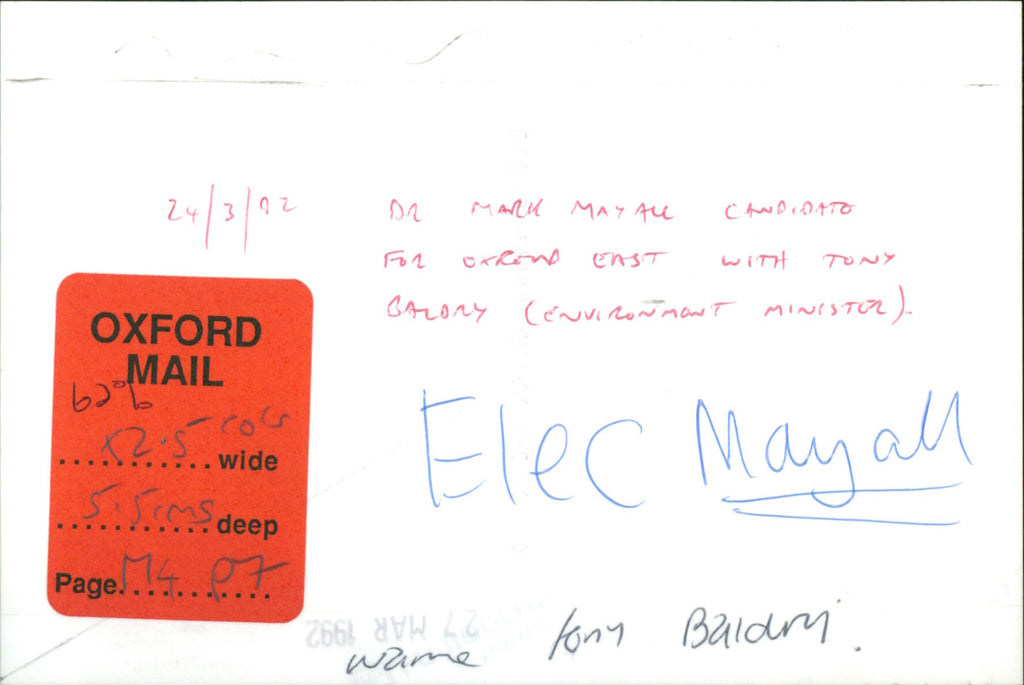 24/3/92
DR MARK MAYALL CANDIDATE
FOR OXFORD EAST WITH TONY
BALDRY (ENVIRONMENT MINISTER).
OXFORD
MAIL
62%
x2.5 cols
...........wide
5.5cms
...........deep
Page. M4 P7
Elec Mayall
27 MAR 1992
name Tony Baldry.